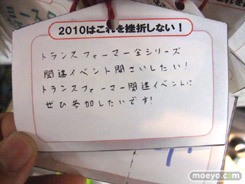 2010はこれを挫折しない!
トランスフォーマー全シリーズ
関連イベント開さいしたい!
トランスフォーマー関連イベントに
ぜひ参加したいです!
moeyo.com